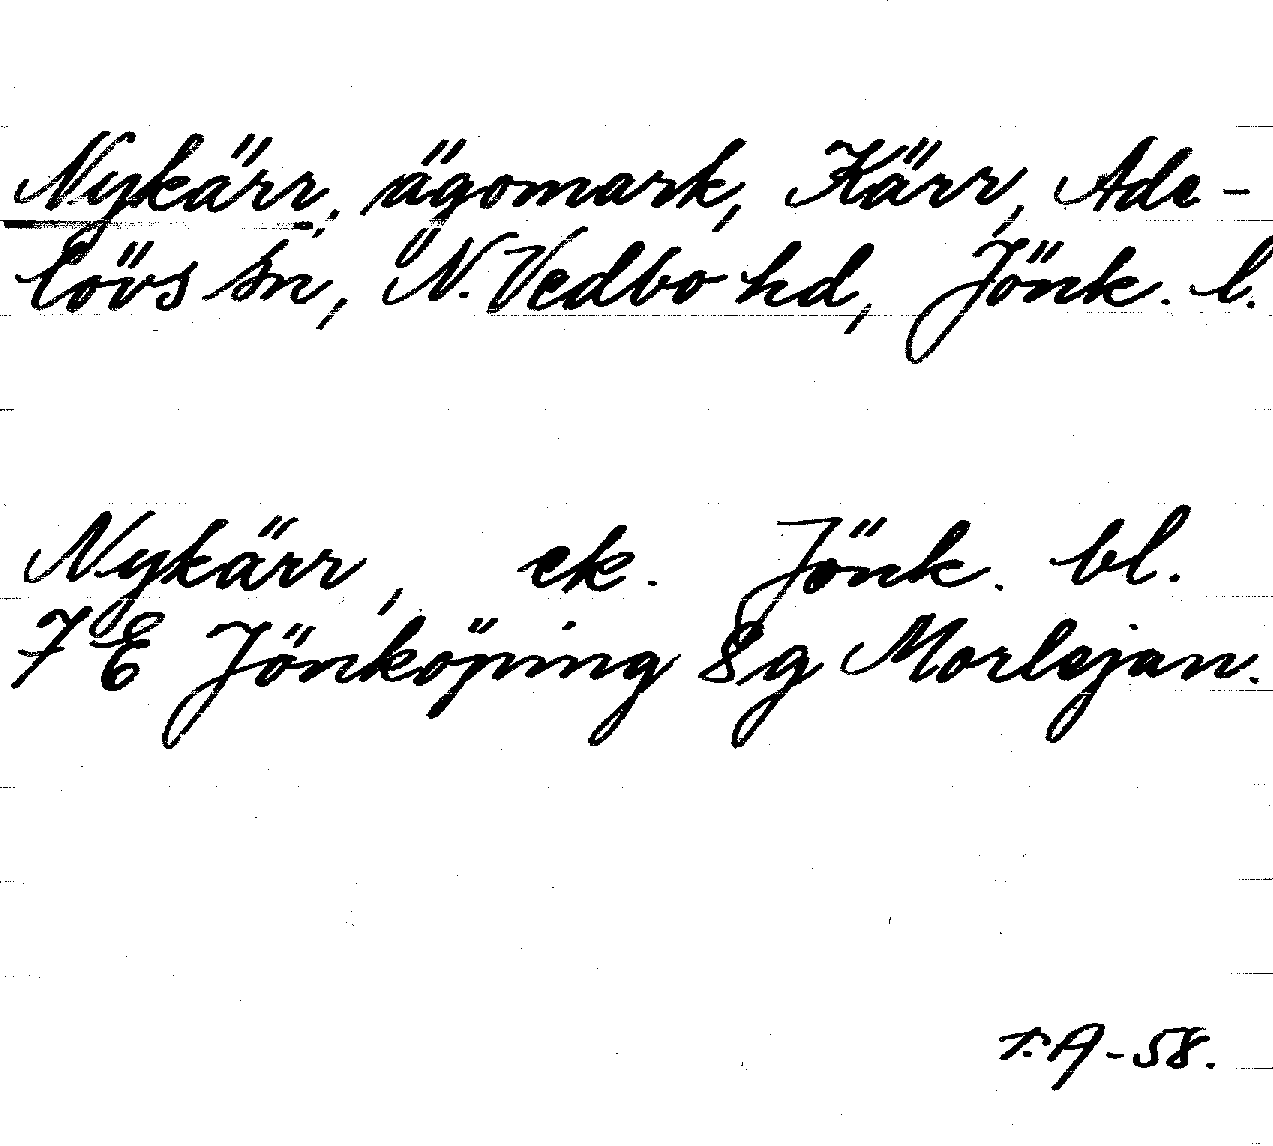 Nykärr, ägomark, Kärr, Ade-
lövs sn, N. Vedbo hd, Jönk. l.
Nykärr, ek. Jönk. bl.
7 E Jönköping 8g Morlejan.
T.A-58.